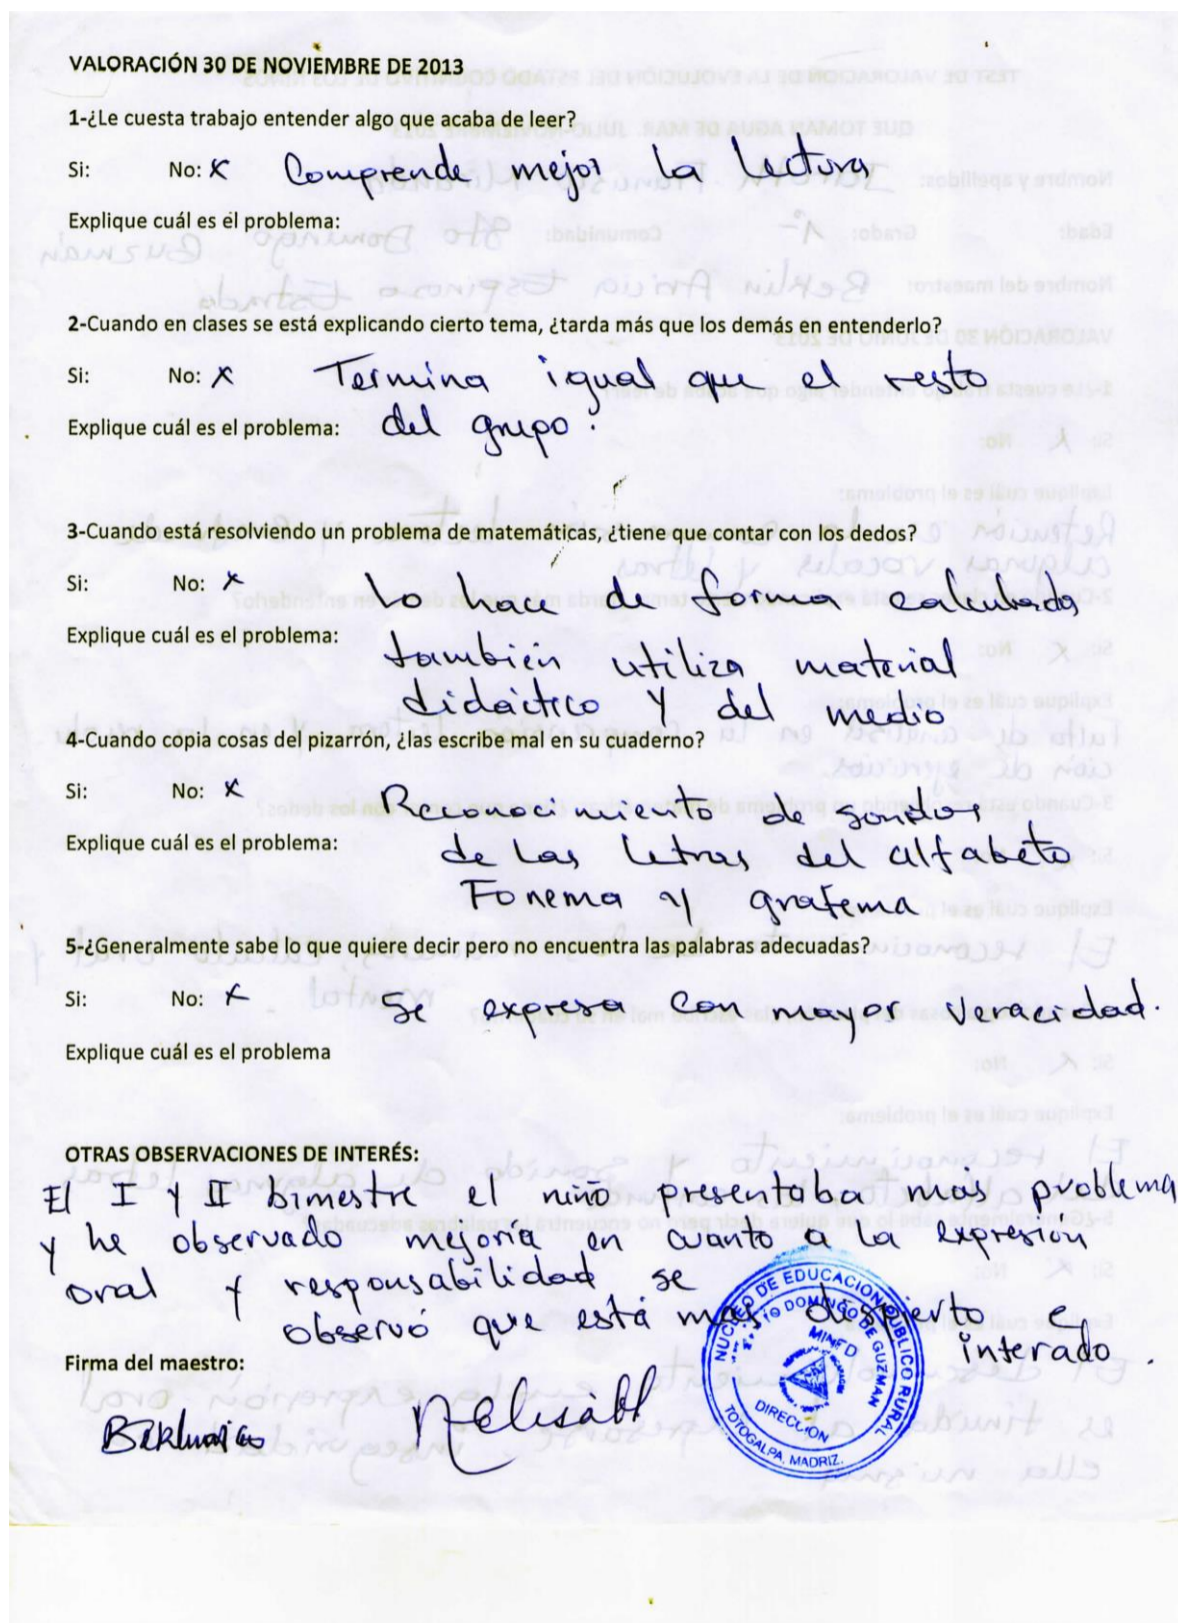 VALORACIÓN 30 DE NOVIEMBRE DE 2013
1-¿Le cuesta trabajo entender algo que acaba de leer?
Si: No: x Comprende mejor la lectura
Explique cuál es el problema:
2-Cuando en clases se está explicando cierto tema, ¿tarda más que los demás en entenderlo?
Si: No: x Termina igual que el resto
Explique cuál es el problema: del grupo.
3-Cuando está resolviendo un problema de matemáticas, ¿tiene que contar con los dedos?
Si: No: x Lo hace de forma calculada
Explique cuál es el problema: también utiliza material
didáctico y del medio
4-Cuando copia cosas del pizarrón, ¿las escribe mal en su cuaderno?
Si: No: x Reconocimiento de sonidos
Explique cuál es el problema: de las letras del alfabeto
Fonema y grafema
5-¿Generalmente sabe lo que quiere decir pero no encuentra las palabras adecuadas?
Si: No: x Se expresa con mayor veracidad.
Explique cuál es el problema
OTRAS OBSERVACIONES DE INTERÉS:
El I y II bimestre el niño presentaba más problema
y he observado mejoría en cuanto a la expresión
oral y responsabilidad se
observó que está mas despierto e
interado.
Firma del maestro:
NUCLEO DE EDUCACION PUBLICO RURAL
STO DOMINGO DE GUZMAN
MINED
DIRECCION
TOTOGALPA, MADRIZ.